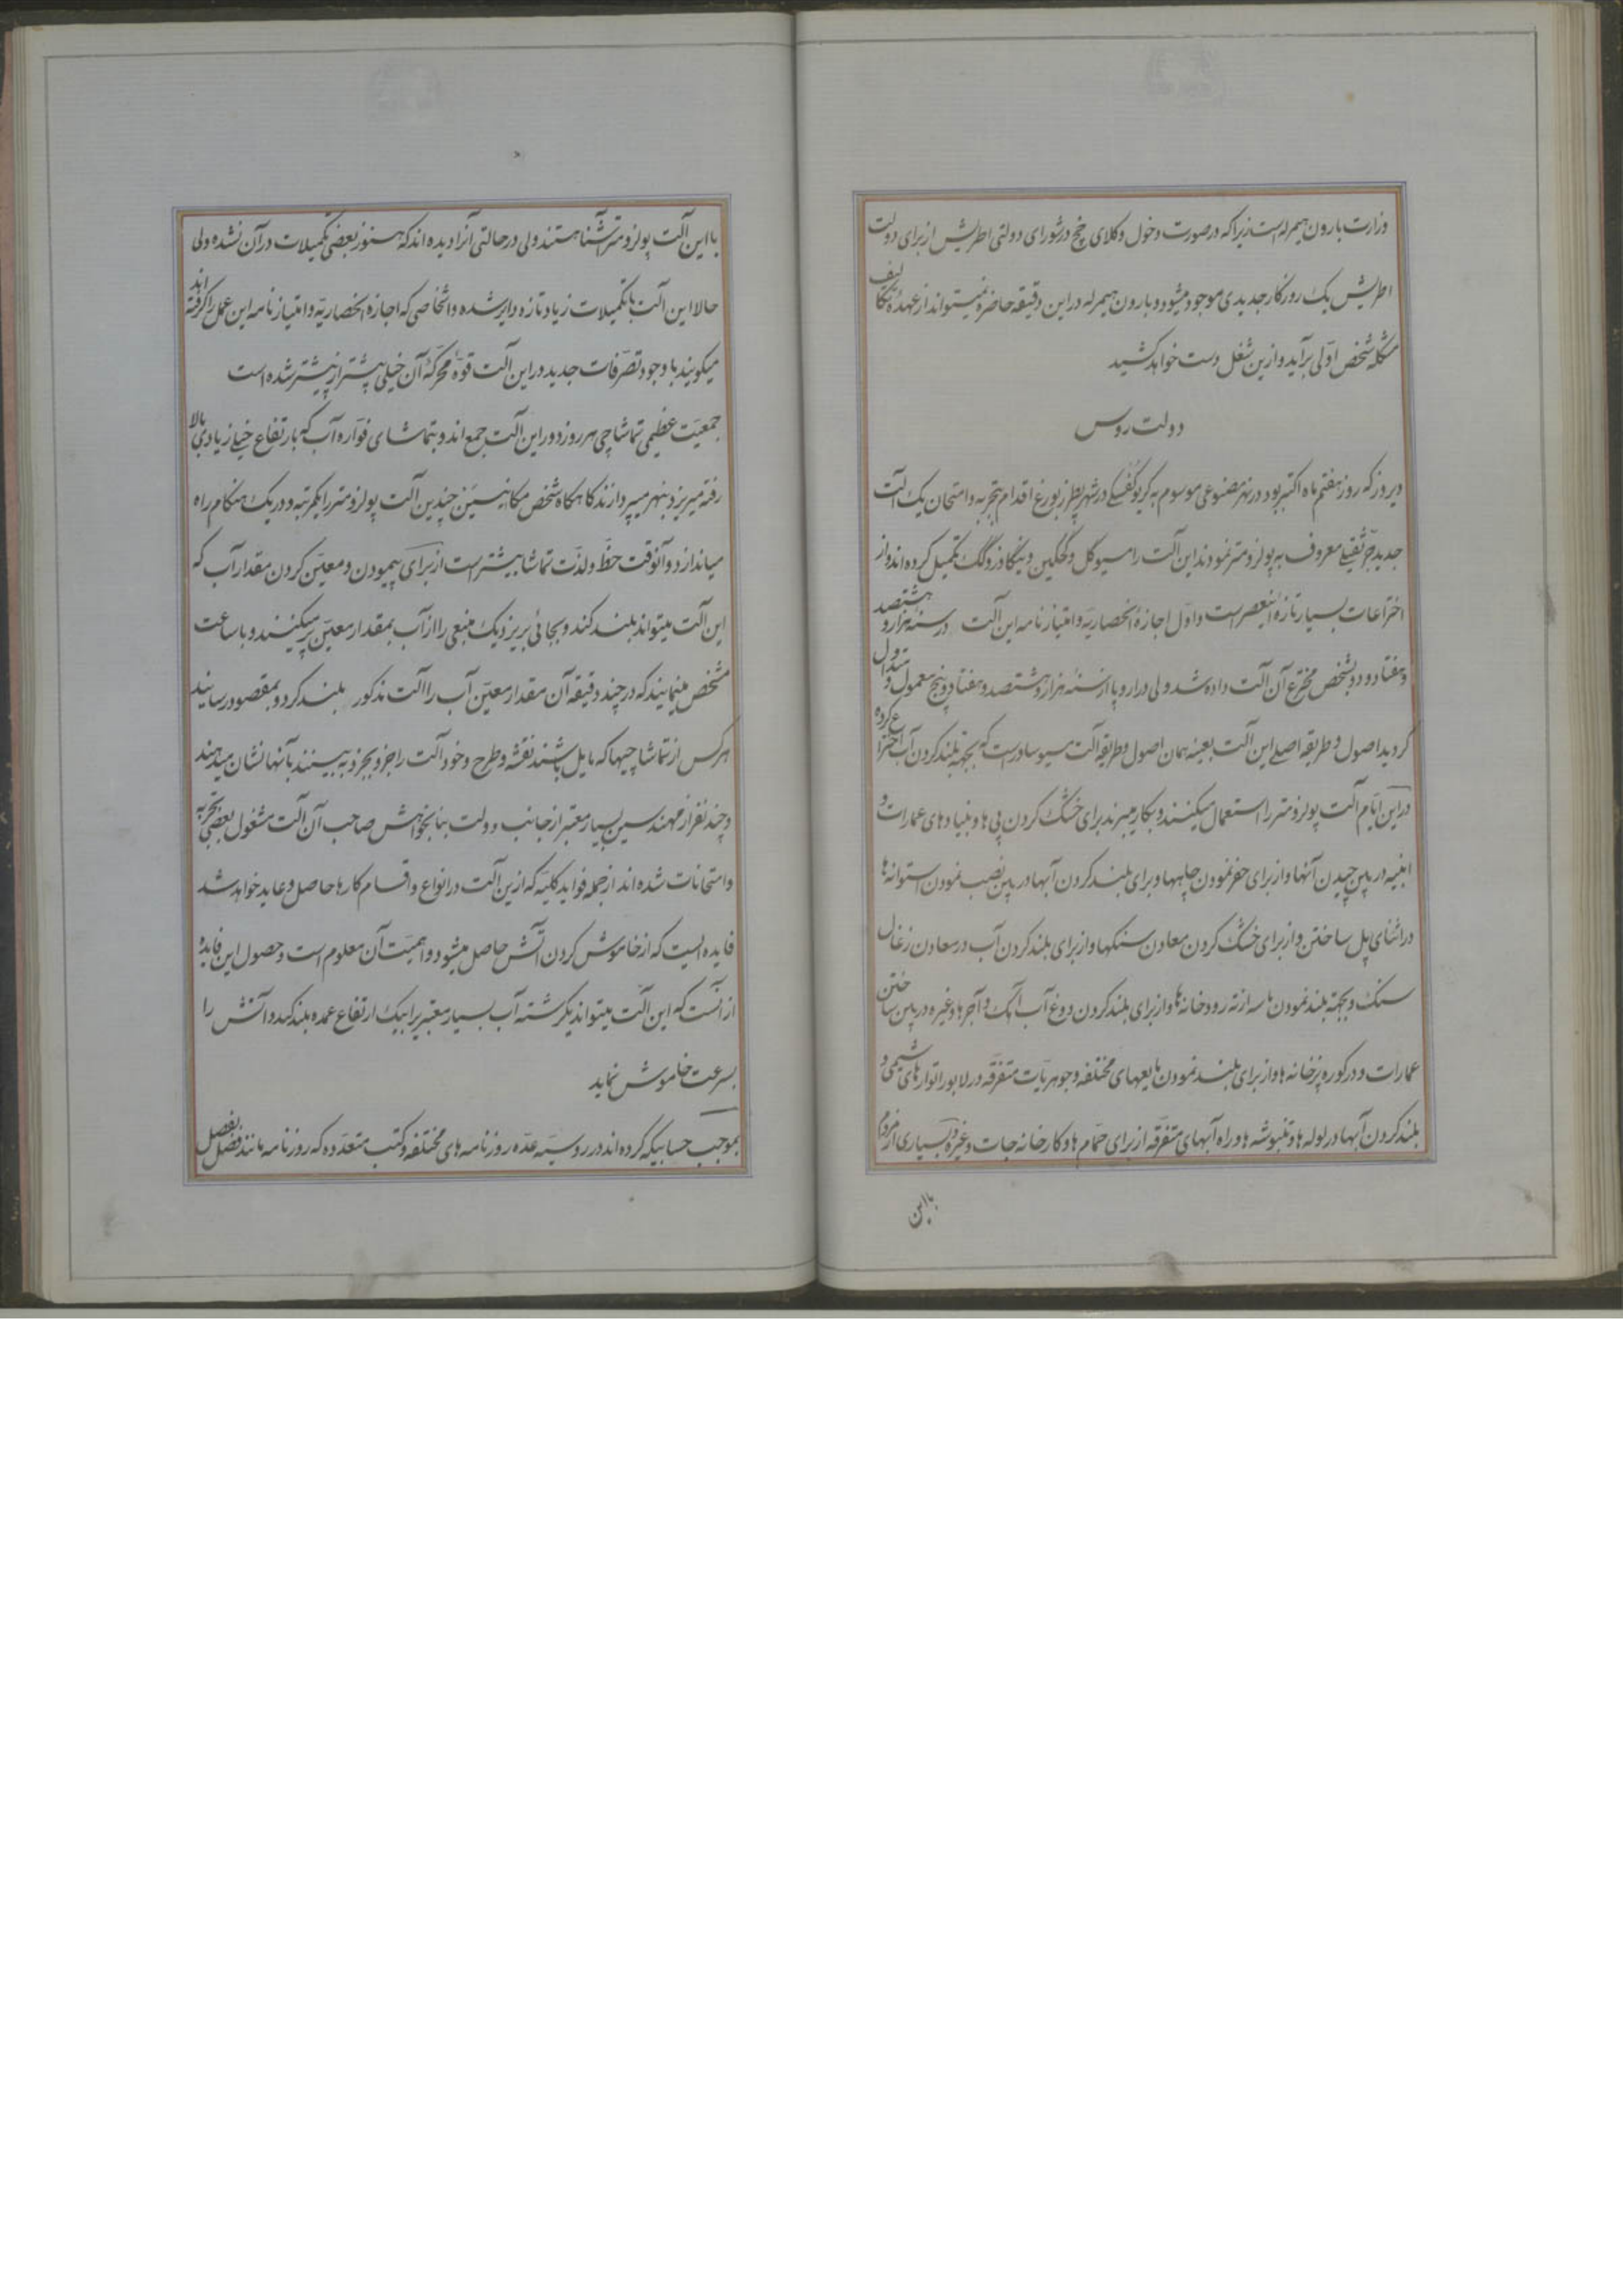 وزارت بارون هیمرله است زیرا که در صورت دخول وکلای چخ در شورای دولتی اطریش از برای دولت
اطریش یک روزگار جدیدی موجود میشود و بارون هیمرله در این دقیقه حاضره نمیتواند از عهدهٔ تکالیف
مشکله شخص اوّلی برآید و ازین شغل دست خواهد کشید
دولت روس
دیروز که روز هفتم ماه اکتبر بود در نهر مصنوعی موسوم به کریوکفسکی در شهر پطرزبورغ اقدام بتجربه و امتحان یک آلت
جدید جرّ ثقیلی معروف به پولزومتر نمودند این آلت را مسیو گل و تکمیل کرده‌اند و از
اختراعات بسیار تازهٔ اینعصر است و اوّل اجازهٔ انحصاریّه و امتیاز نامه این آلت در سنهٔ هزار و هشتصد
و هفتاد و دو بشخص مخترع آن آلت داده شد ولی در اروپا از سنهٔ هزار و هشتصد و هفتاد و پنج معمول و متداول
گردید اصول و طریقه اصلی این آلت بعینه همان اصول و طریقه آلت مسیو ساور است که بجهة بلند کردن آب اختراع کرده
در این ایّام آلت پولزومتر را استعمال میکنند و بکار میبرند برای خشک کردن پی‌ها و بنیادهای عمارات و
ابنیه در بین چیدن آنها و از برای حفر نمودن چاهها و برای بلند کردن آبها در بین نصب نمودن استوانه‌ها
در اثنای پل ساختن و از برای خشک کردن معادن سنگها و از برای بلند کردن آب در معادن زغال
سنگ و بجهة بلند نمودن ماسه از ته رودخانه‌ها و از برای بلند کردن دوغ آب آهک و آجرها و غیره در بین ساختن
عمارات و در کوره‌پزخانه‌ها و از برای بلند نمودن مایعهای مختلفه و جوهریّات متفرّقه در لابوراتوارهای شیمی و
بلند کردن آبها در لوله‌ها و تنبوشه‌ها و راه آبهای متفرّقه از برای حمّام‌ها و کارخانه‌جات و غیره بسیاری از مردم
با این
با این آلت پولزومتر آشنا هستند ولی در حالتی آنرا دیده‌اند که هنوز بعضی تکمیلات در آن نشده ولی
حالا این آلت با تکمیلات زیاد تازه دایر شده و اشخاصی که اجازه انحصاریّه و امتیاز نامه این عمل را گرفته‌اند
میگویند با وجود تصرّفات جدید در این آلت قوّهٔ محرّکهٔ آن خیلی بیشتر از پیشتر شده است
جمعیّت عظیمی تماشاچی هر روز دور این آلت جمع‌اند و بتماشای فوّاره آب که بارتفاع خیلی زیادی بالا
رفته میریزد بنهر میپردازند گاهگاه شخص مکانیسین چندین آلت پولزومتر را یکمرتبه و در یک هنگام راه
میاندازد و آنوقت حظّ و لذّت تماشا بیشتر است از برای پیمودن و معیّن کردن مقدار آب که
این آلت میتواند بلند کند و بجائی بریزد یک منبعی را از آب بمقدار معیّن پر میکنند و با ساعت
مشخص مینمایند که در چند دقیقه آن مقدار معیّن آب را آلت مذکور بلند کرد و بمقصود رسانید
هر کس از تماشاچیها که مایل باشند نقشه و طرح و خود آلت را جزو بجزو به بینند بآنها نشان میدهند
و چند نفر از مهندسین بسیار معتبر از جانب دولت بنا بخواهش صاحب آن آلت مشغول بعضی تجربه
و امتحانات شده‌اند از جمله فواید کلیّه که ازین آلت در انواع و اقسام کارها حاصل و عاید خواهد شد
فایده ایست که از خاموش کردن آتش حاصل میشود و اهمیّت آن معلوم است و حصول این فایده
از آنست که این آلت میتواند یکرشته آب بسیار معتبر را بیک ارتفاع عمده بلند کند و آتش را
بسرعت خاموش نماید
بموجب حسابیکه کرده‌اند در روسیّه عدّه روزنامه‌های مختلفه و کتب متعدّده که روزنامه مانند فصل بفصل